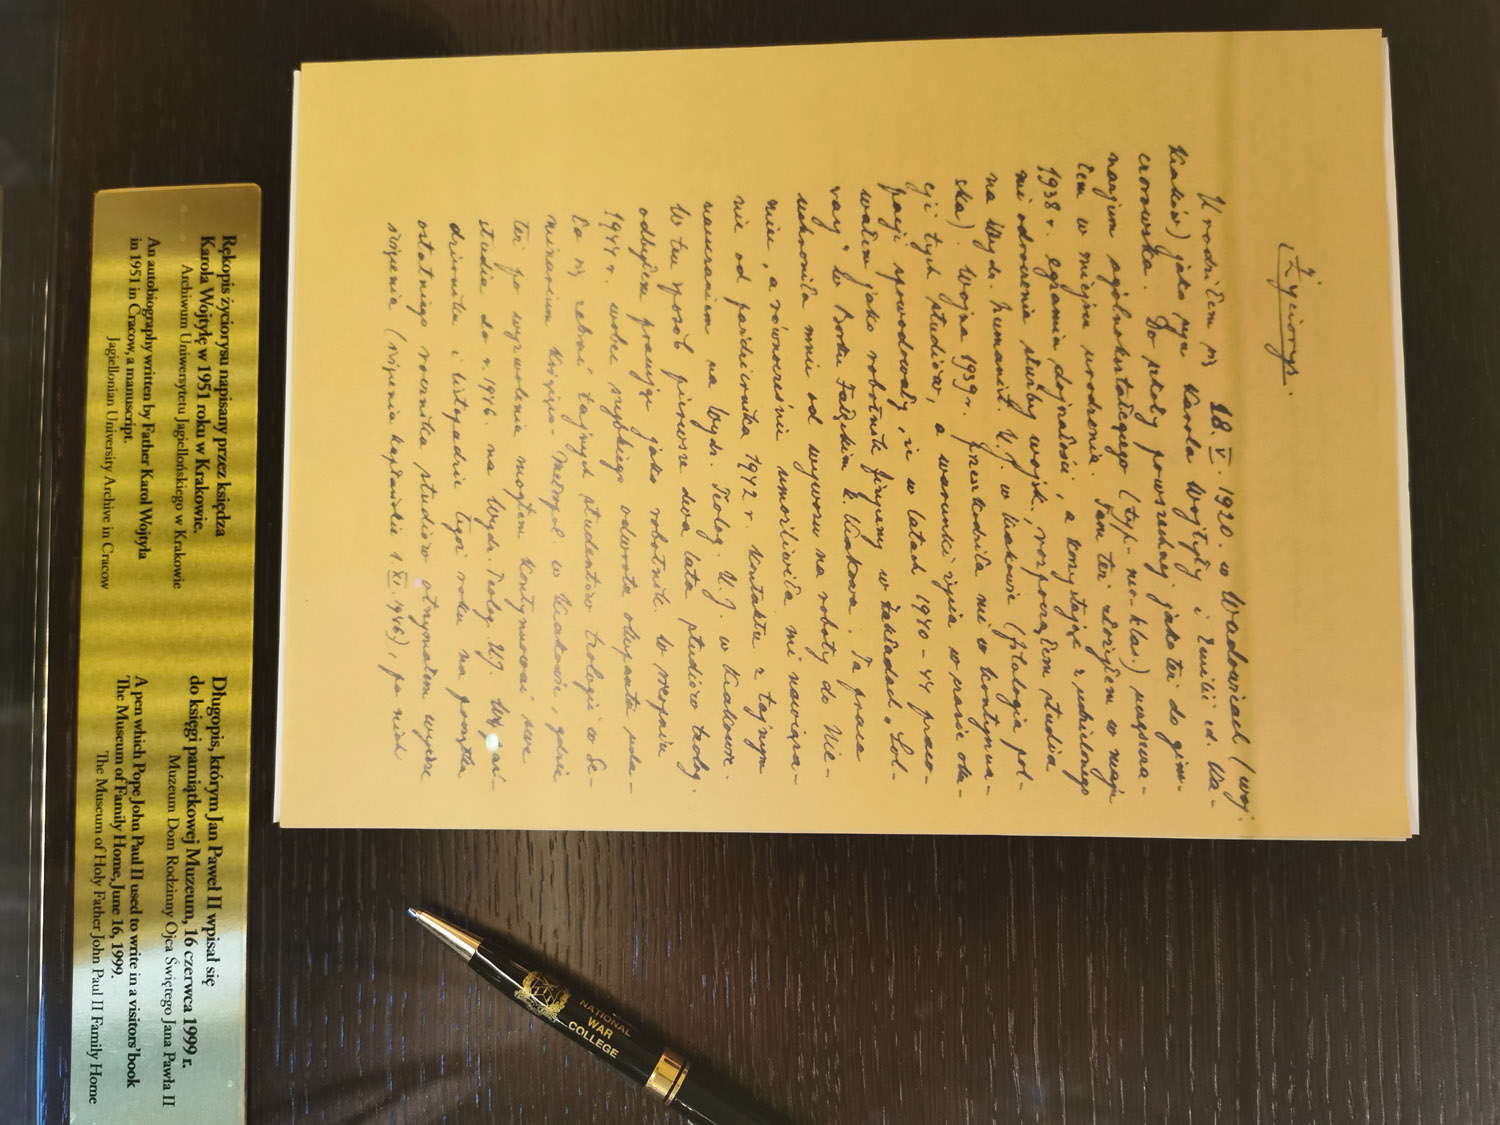 Życiorys.
Urodziłem się 18.V.1920. w Wadowicach (woj.
Kraków) jako syn Karola Wojtyły i Emilii z d. Ka-
czorowska. Do szkoły powszechnej jako też do gim-
nazjum ogólnokształcącego (typ neo-klas.) uczęszcza-
łem w miejscu urodzenia. Tam też złożyłem w maju
1938 r. egzamin dojrzałości, a korzystając z udzielonego
mi odroczenia służby wojsk., rozpocząłem studia
na Wydz. humanist. U.J. w Krakowie (filologia pol-
ska). Wojna 1939 r. przeszkodziła mi w kontynua-
cji tych studiów, a warunki życia w czasie oku-
pacji spowodowały, iż w latach 1940-44 praco-
wałem jako robotnik fizyczny w zakładach „Sol-
vay" w Borku Fałęckim k. Krakowa. Ta praca
uchroniła mnie od wywozu na roboty do Nie-
miec, a równocześnie umożliwiła mi nawiąza-
nie od października 1942 r. kontaktu z tajnym
nauczaniem na Wydz. Teolog. U.J. w Krakowie.
W ten sposób pierwsze dwa lata studiów teolog.
odbyłem pracując jako robotnik. W sierpniu
1944 r. wobec szybkiego odwrotu okupanta uda-
ło się zebrać tajnych studentów teologii w Se-
minarium Książęco-Metropol. w Krakowie, gdzie
też po wyzwoleniu mogłem kontynuować swe
studia do r. 1946. na Wydz. Teolog. UJ. W paź-
dzierniku i listopadzie tegoż roku na początku
ostatniego rocznika studiów otrzymałem wyższe
święcenia (święcenia kapłańskie 1.XI.1946), po nich
Rękopis życiorysu napisany przez księdza
Karola Wojtyłę w 1951 roku w Krakowie.
Archiwum Uniwersytetu Jagiellońskiego w Krakowie
An autobiography written by Father Karol Wojtyła
in 1951 in Cracow, a manuscript.
Jagiellonian University Archive in Cracow
Długopis, którym Jan Paweł II wpisał się
do księgi pamiątkowej Muzeum, 16 czerwca 1999 r.
Muzeum Dom Rodzinny Ojca Świętego Jana Pawła II
A pen which Pope John Paul II used to write in a visitors' book
The Museum of Family Home, June 16, 1999.
The Museum of Holy Father John Paul II Family Home
NATIONAL
WAR
COLLEGE